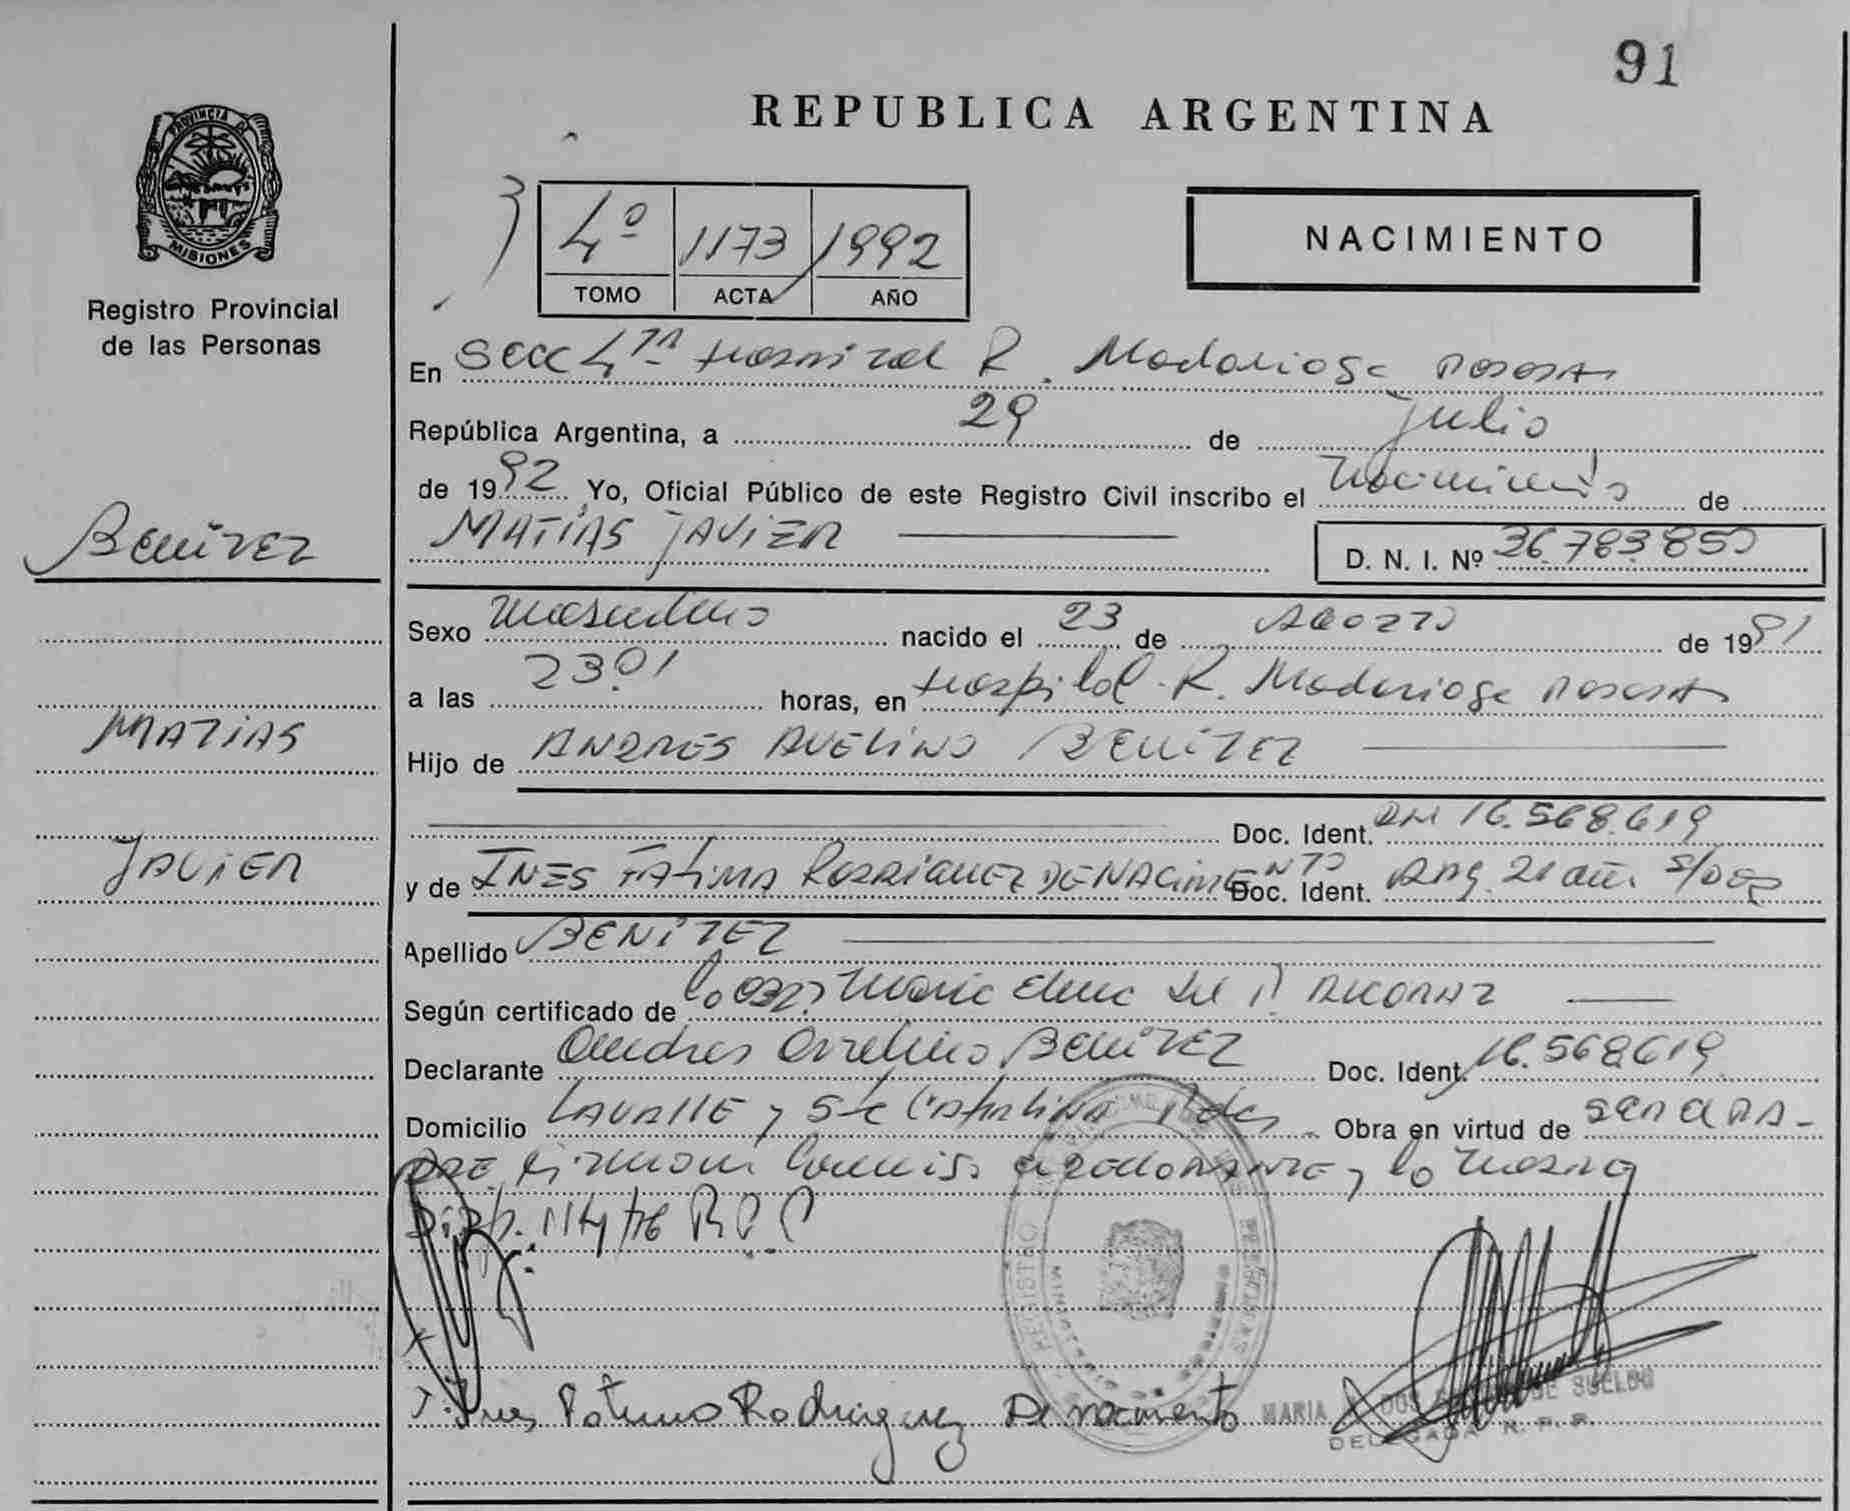 91
REPUBLICA ARGENTINA
PROVINCIA DE
MISIONES
Registro Provincial
de las Personas
4º 1173 1992
TOMO ACTA AÑO
NACIMIENTO
En Secc 4ta Hospital R. Madariaga Posadas
República Argentina, a 29 de Julio
de 1992 Yo, Oficial Público de este Registro Civil inscribo el Nacimiento de
Benítez
MATÍAS JAVIER
D. N. I. Nº 36.783.850
Sexo Masculino nacido el 23 de Agosto de 1991
a las 23.01 horas, en Hospital R. Madariaga Posadas
MATIAS
Hijo de ANDRES AVELINO BENÍTEZ
Doc. Ident. DNI 16.568.619
JAVIER
y de INES FATIMA RODRIGUEZ DE NACIMENTO Doc. Ident. Arg. 21 añ. s/doc
Apellido BENÍTEZ
Según certificado de la obst. Maria Elena del
Declarante Andres Avelino BENÍTEZ Doc. Ident. 16.568.619
Domicilio LAVALLE y Sta CATALINA Pdas. Obra en virtud de ser
padre, firman y la
Disp. 114/76 R.P.P
REGISTRO
Ines Fatima Rodriguez De nacimento
MARIA DOS DE SUELDO
DELEGADA R. P. P.